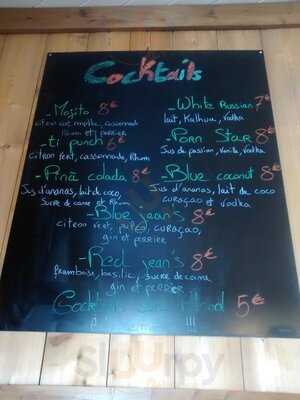 Cocktails
-Mojito 8€
citron vert, menthe, cassonade
Rhum et perrier
-ti punch 6€
Citron vert, cassonnade, Rhum
-Pinã colada 8€
Jus d'ananas, lait de coco,
Sucre de canne et Rhum
-White Russian 7€
lait, Kalhua, Vodka
-Porn Star 8€
Jus de passion, Vanille, Vodka
-Blue coconut 8€
Jus d'ananas, lait de coco
curaçao et vodka
-Blue jean's 8€
citron vert, curaçao,
gin et perrier
-Red jean's 8€
framboise, basilic, sucre de canne,
gin et perrier
Cocktail 5€